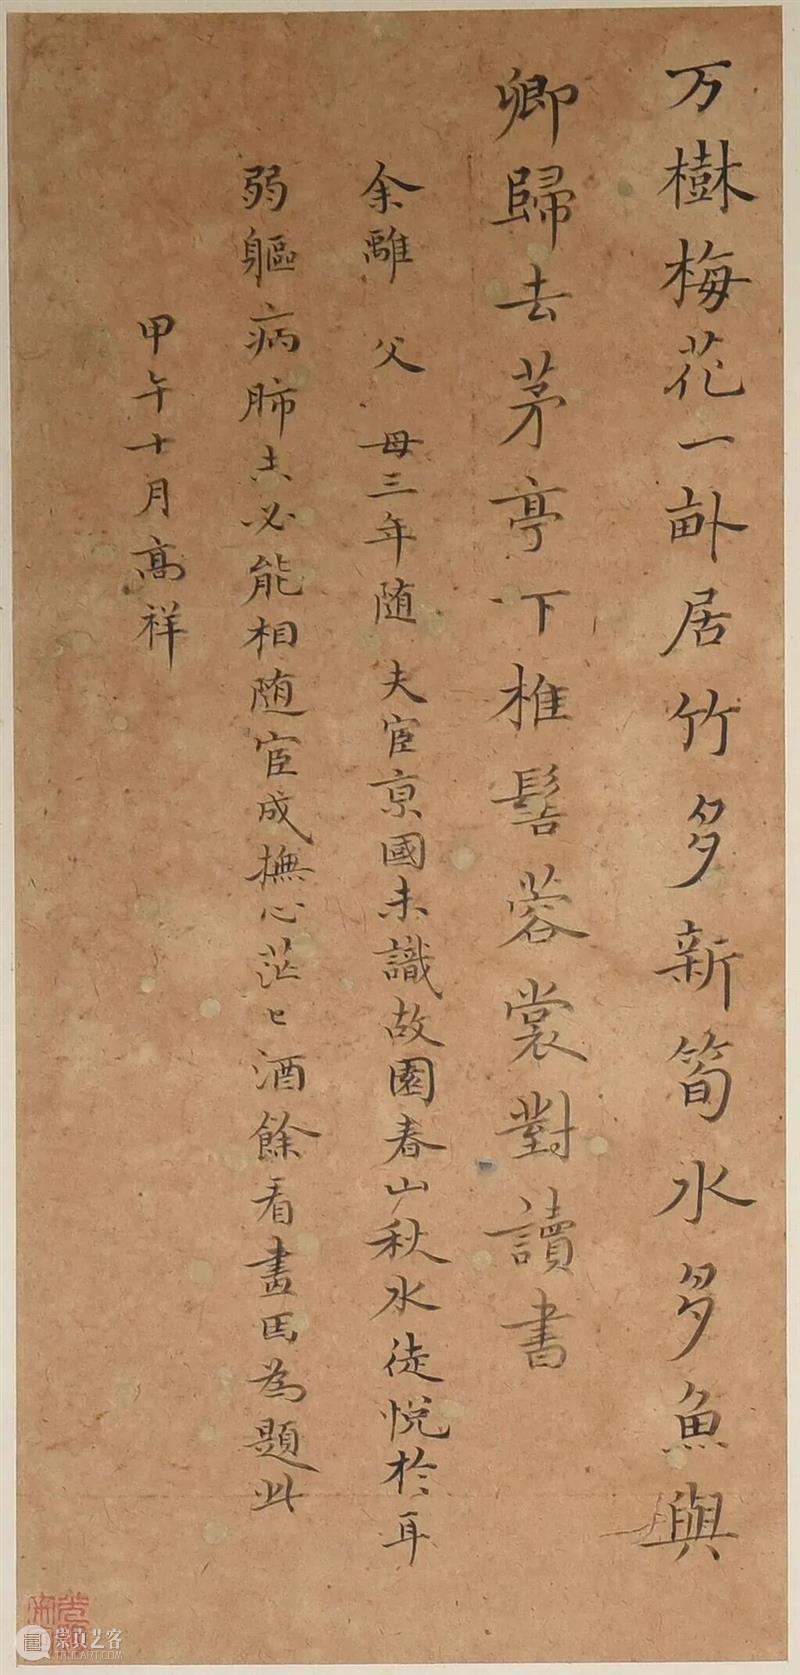 万樹梅花一畝居竹多新筍水多魚與
卿歸去茅亭下椎髻蓉裳對讀書
余離 父 母三年随 夫宦亰國未識故園春山秋水徒悦於耳
弱軀病肺未必能相随宦成撫心茫〻酒餘看畫囙為題此
甲午十月髙祥
崇真艺客